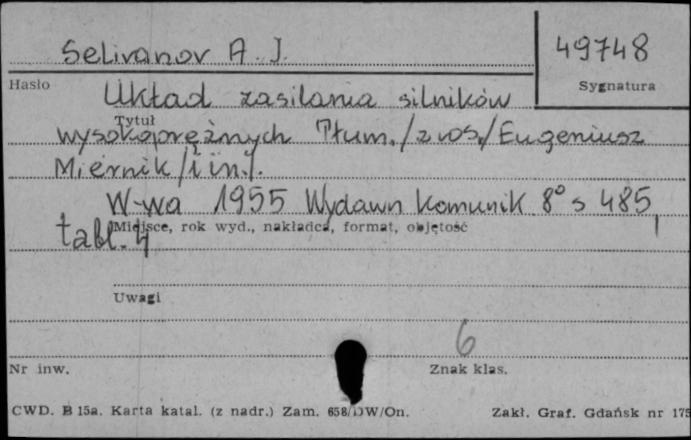 Selivanov A. J.
49748
Hasło
Sygnatura
Układ zasilania silników
Tytuł
wysokoprężnych Tłum. /z ros./ Eugeniusz
Miernik /i in./.
W-wa 1955 Wydawn Komunik 8° s 485,
tabl. 4
Miejsce, rok wyd., nakładca, format, objętość
Uwagi
6
Nr inw.
Znak klas.
CWD. B 15a. Karta katal. (z nadr.) Zam. 658/DW/On.
Zakł. Graf. Gdańsk nr 175